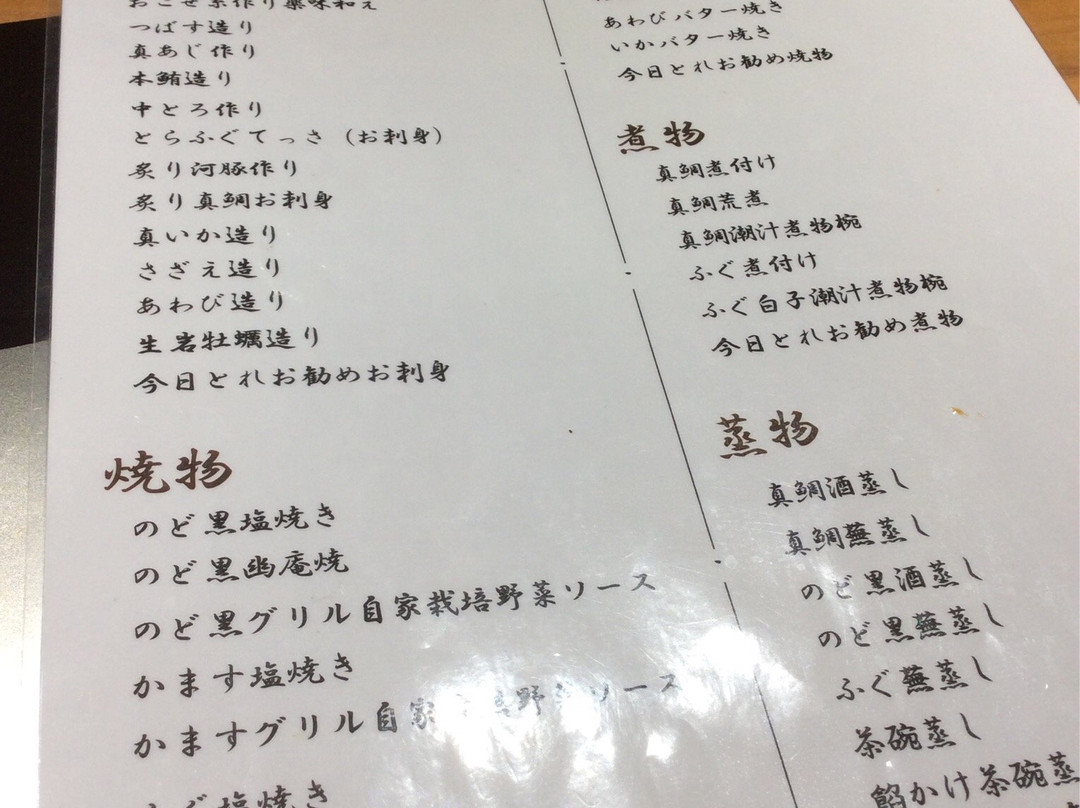 おこぜ糸作り薬味和え
つばす造り
真あじ作り
本鮪造り
中とろ作り
とらふぐてっさ（お刺身）
炙り河豚作り
炙り真鯛お刺身
真いか造り
さざえ造り
あわび造り
生岩牡蠣造り
今日とれお勧めお刺身
焼物
のど黒塩焼き
のど黒幽庵焼
のど黒グリル自家栽培野菜ソース
かます塩焼き
かますグリル自家栽培野菜ソース
ふぐ塩焼き
あわびバター焼き
いかバター焼き
今日とれお勧め焼物
煮物
真鯛煮付け
真鯛荒煮
真鯛潮汁煮物椀
ふぐ煮付け
ふぐ白子潮汁煮物椀
今日とれお勧め煮物
蒸物
真鯛酒蒸し
真鯛蕪蒸し
のど黒酒蒸し
のど黒蕪蒸し
ふぐ蕪蒸し
茶碗蒸し
餡かけ茶碗蒸